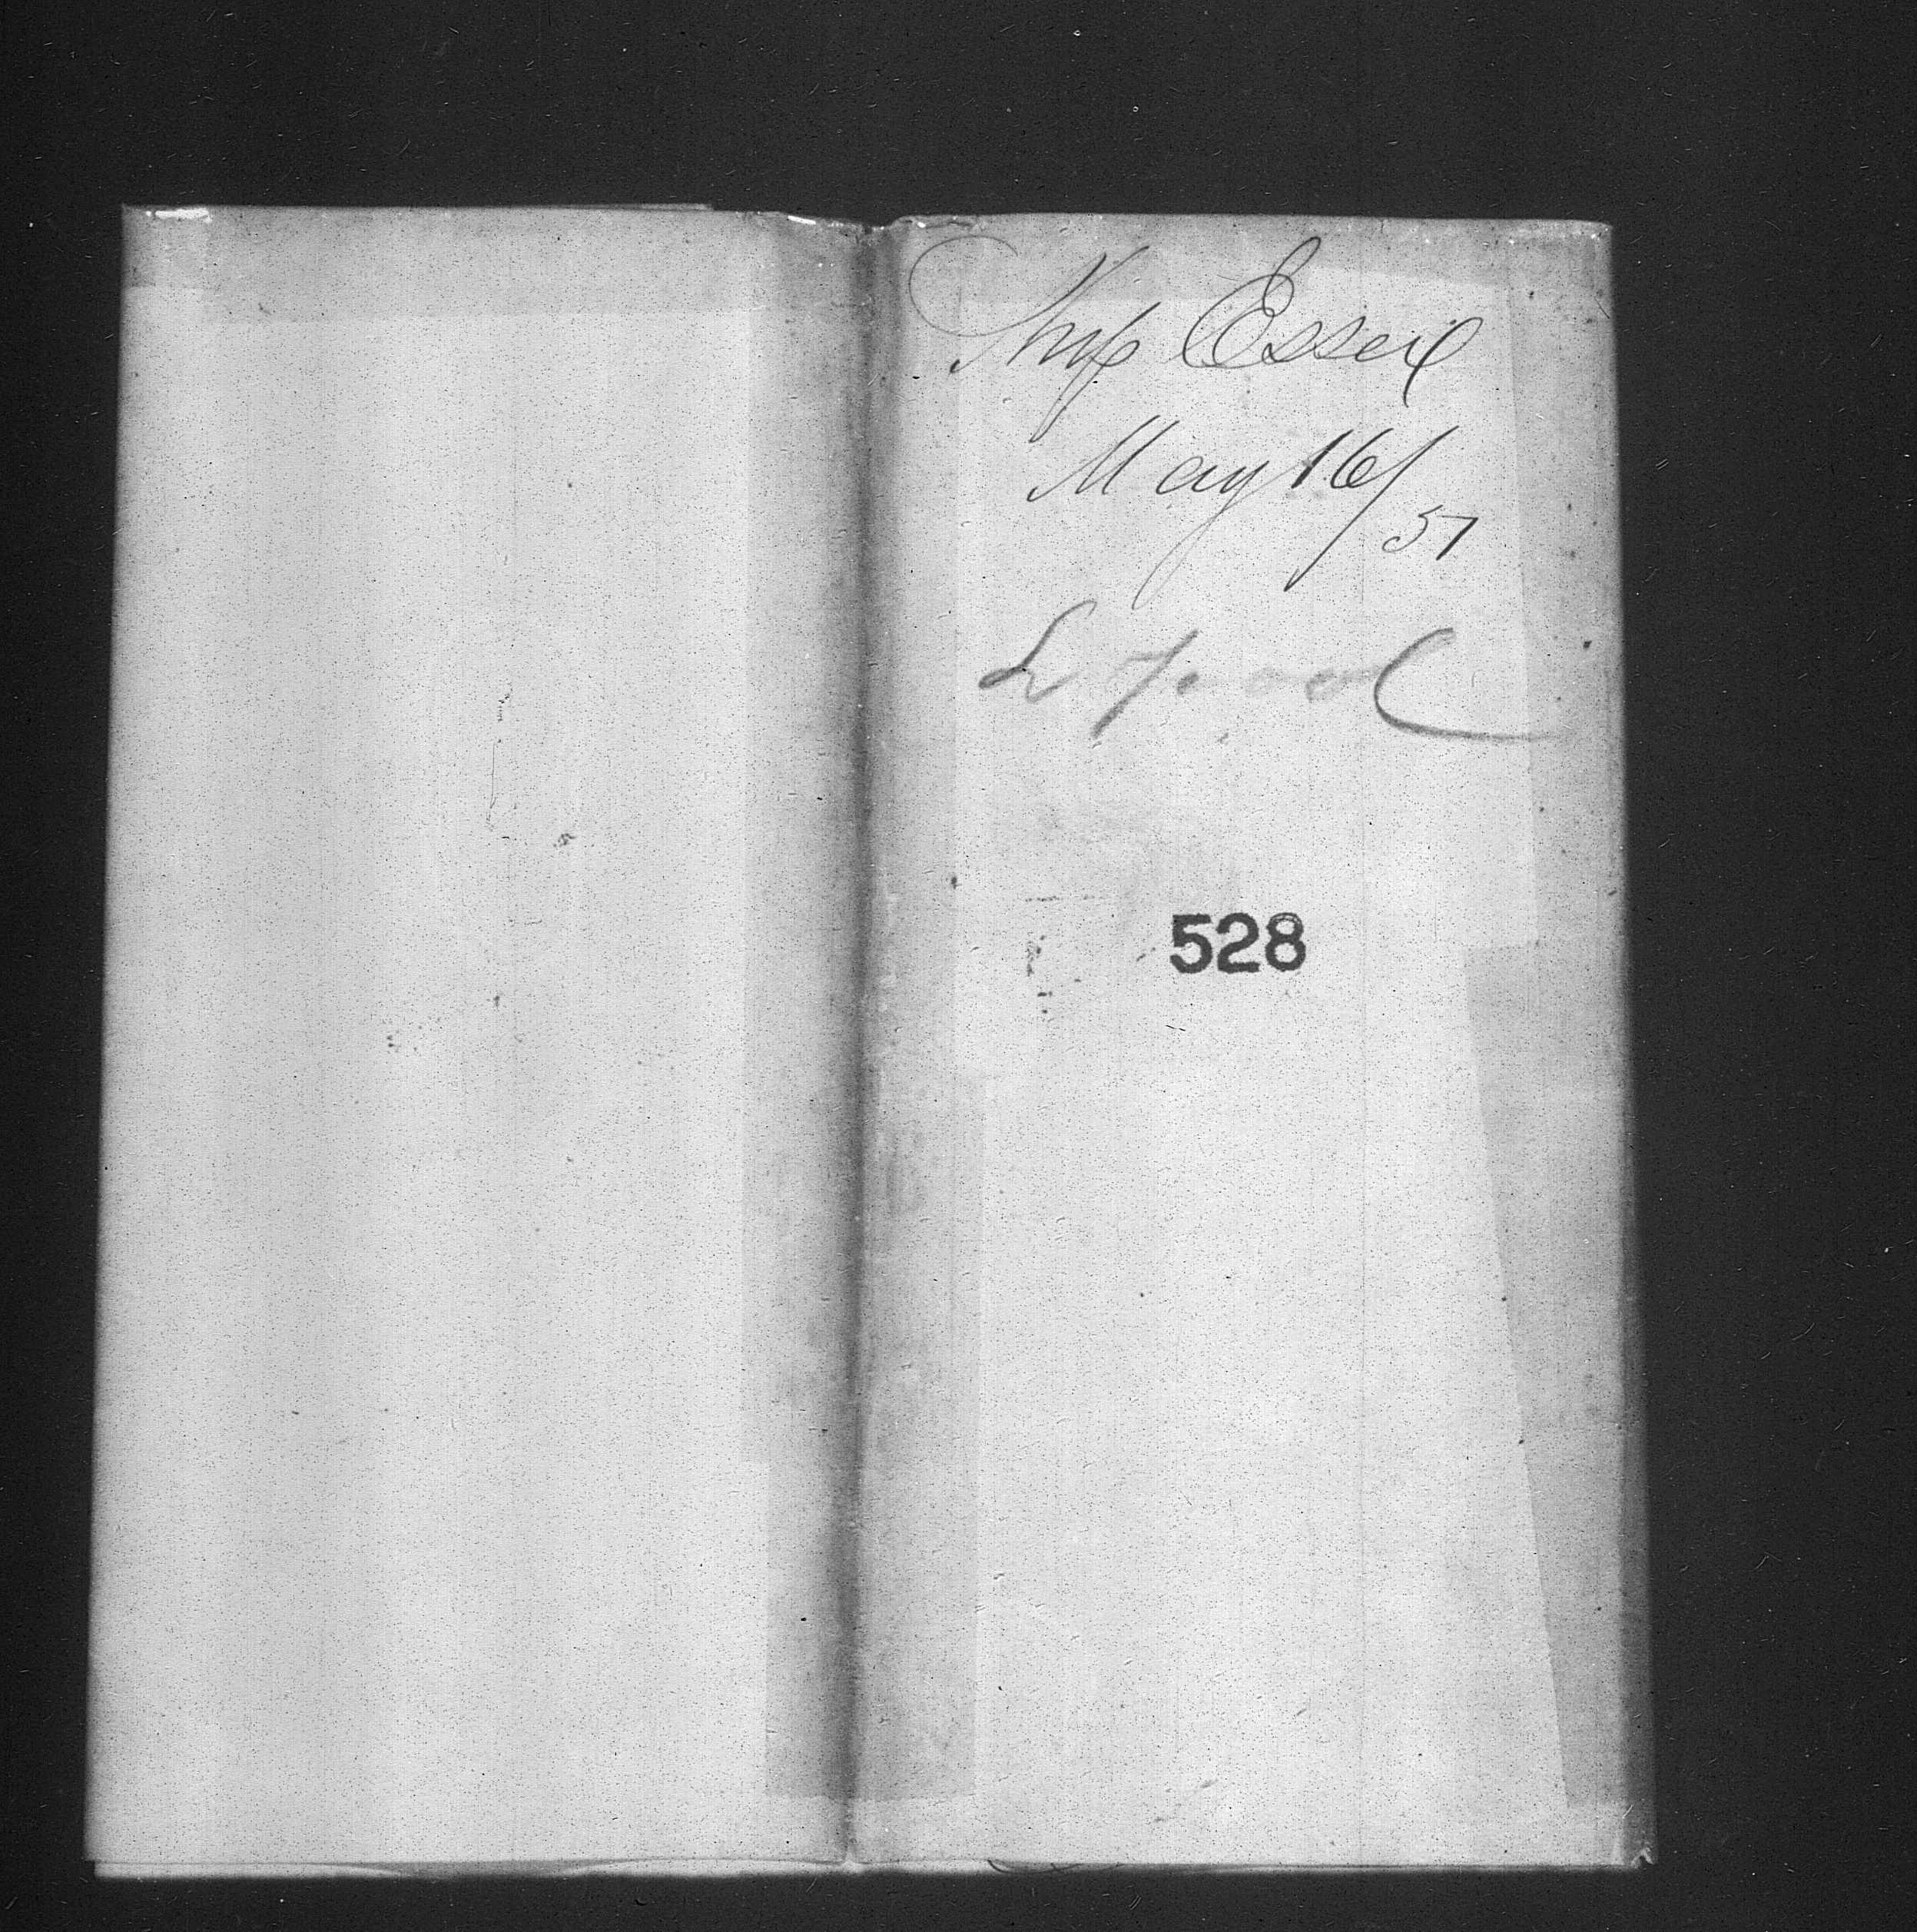 Ship Essex
May 16/
57
L pool
528